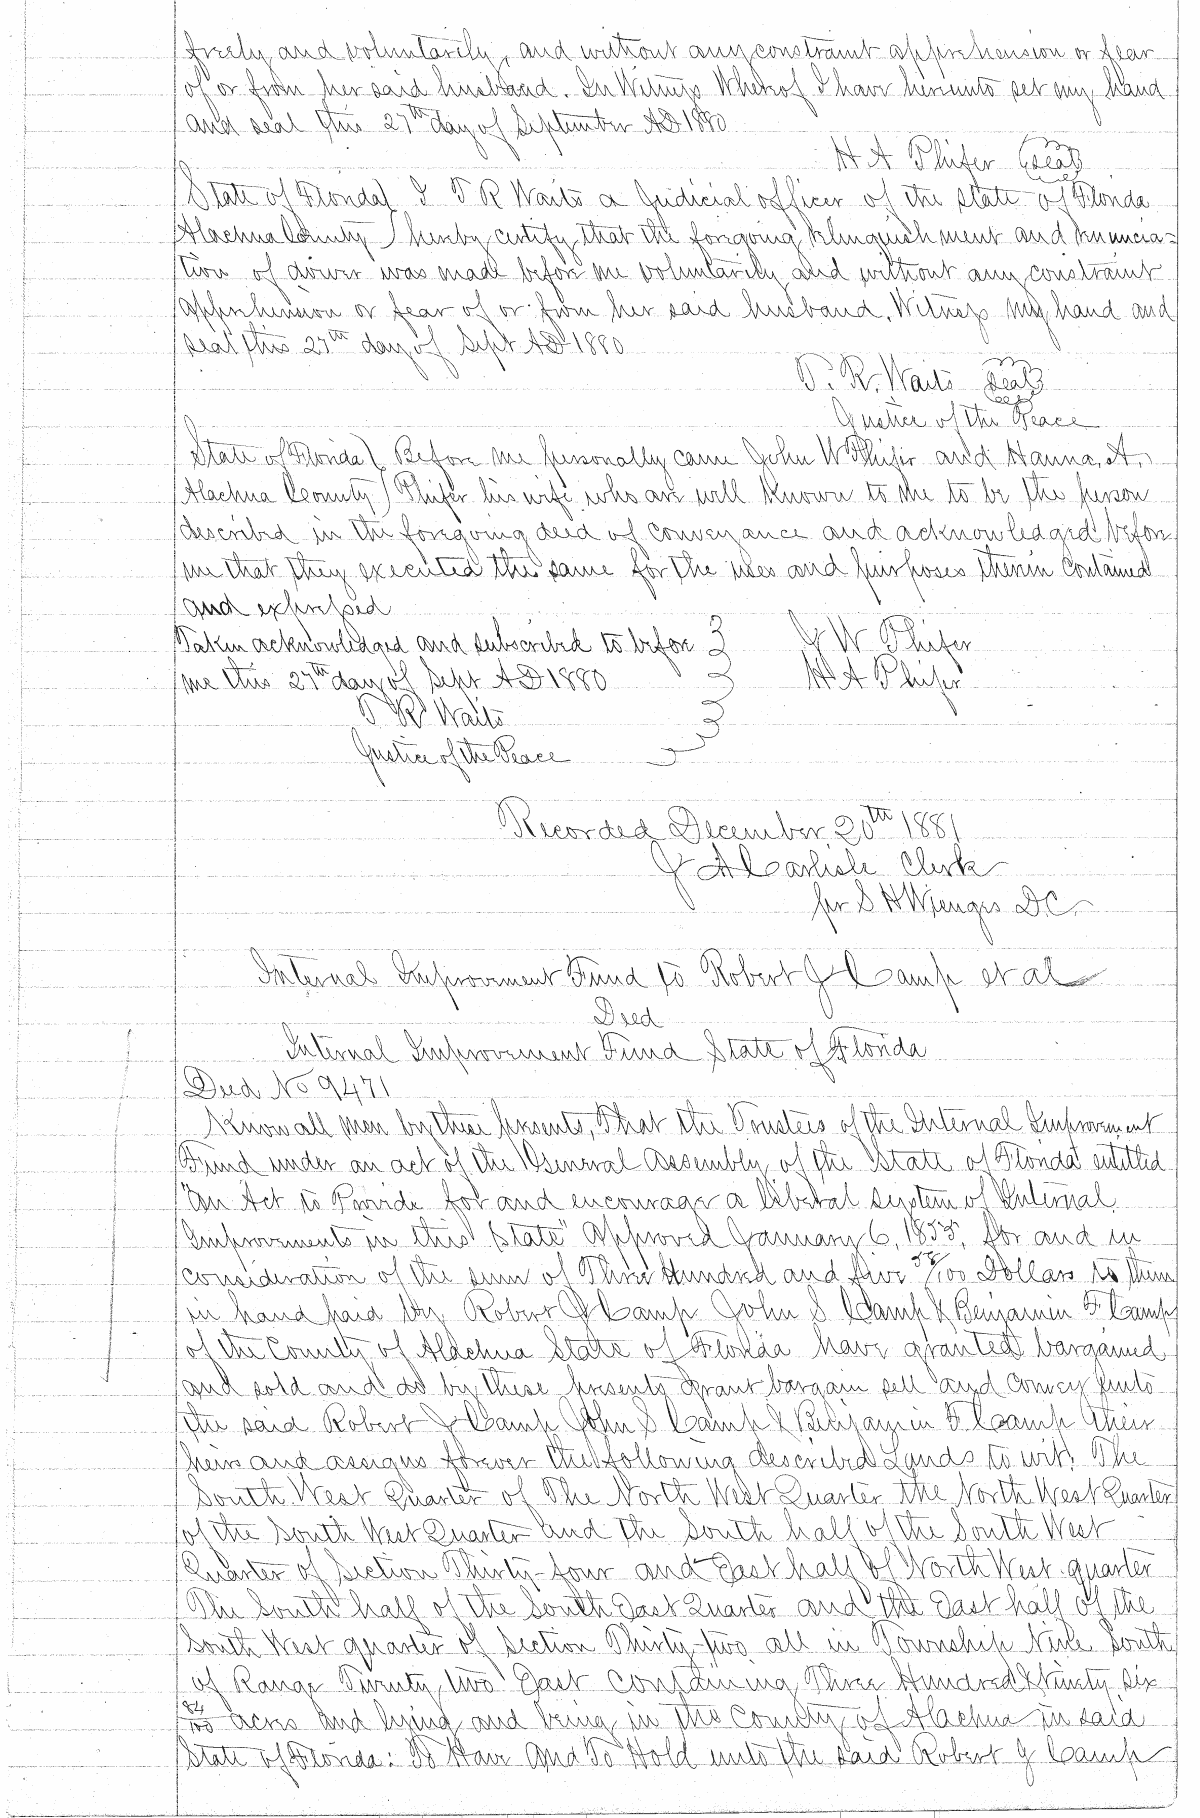 freely and voluntarily, and without any constraint apprehension or fear
of or from her said husband. In Witness Whereof I have hereunto set my hand
and seal this 27th day of September AD 1880
H A Phifer (seal)
State of Florida } I T R Waits a Judicial officer of the state of Florida
Alachua County } hereby certify that the foregoing relinquishment and renuncia=
tion of dower was made before me voluntarily and without any constraint
apprehension or fear of or from her said husband. Witness my hand and
seal this 27th day of Sept AD 1880
T. R. Waits seal
Justice of the Peace
State of Florida } Before me personally came John W Phifer and Hanna A.
Alachua County } Phifer his wife who are well known to me to be the person
described in the foregoing deed of conveyance and acknowledged before
me that they executed the same for the uses and purposes therein contained
and expressed
Taken acknowledged and subscribed to before } J W Phifer
me this 27th day of Sept AD 1880 } H A Phifer
T R Waits
Justice of the Peace
Recorded December 20th 1881
J A Carlisle Clerk
per S H Wienges D.C.
Internal Improvement Fund to Robert J Camp et al
Deed
Internal Improvement Fund State of Florida
Deed No 9471
Know all men by these presents, That the Trustees of the Internal Improvement
Fund under an act of the General Assembly of the State of Florida entitled
"An Act to Provide for and encourage a liberal system of Internal
Improvements in this State" Approved January 6, 1855, for and in
consideration of the sum of Three Hundred and five 58/100 Dollars to them
in hand paid by Robert J Camp John S Camp & Benjamin F Camp
of the County of Alachua State of Florida have granted bargained
and sold and do by these presents grant bargain sell and convey unto
the said Robert J Camp John S Camp & Benjamin F Camp their
heirs and assigns forever the following described Lands to wit: The
South West Quarter of The North West Quarter the North West Quarter
of the South West Quarter and the South half of the South West
Quarter of Section Thirty-four and East half of North West quarter
The South half of the South East Quarter and the East half of the
South West quarter of Section Thirty-two all in Township Nine South
of Range Twenty two East containing Three Hundred & Ninety six
84/100 acres and lying and being in the County of Alachua in said
State of Florida: To Have And To Hold unto the said Robert J Camp